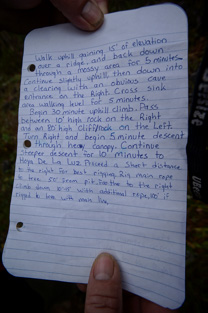 Walk uphill gaining 15' of elevation
over a ridge, and back down
through a mossy area for 5 minutes.
Continue slightly uphill, then down into
a clearing with an obvious cave
entrance on the Right. Cross sink
area walking level for 5 minutes.
Begin 30 minute uphill climb. Pass
between 10' high rock on the Right
and an 80' high Cliff/rock on the Left.
Turn Right and begin 5 minute descent
through heavy canopy. Continue
steeper descent for 10 minutes to
Hoya De La Luz. Proceed a short distance
to the right. For best rigging, Rig main rope
to tree 50' from pit, line the to the right
climb down 10'-15' with additional rope, 100' if
rigged to tree with main line.